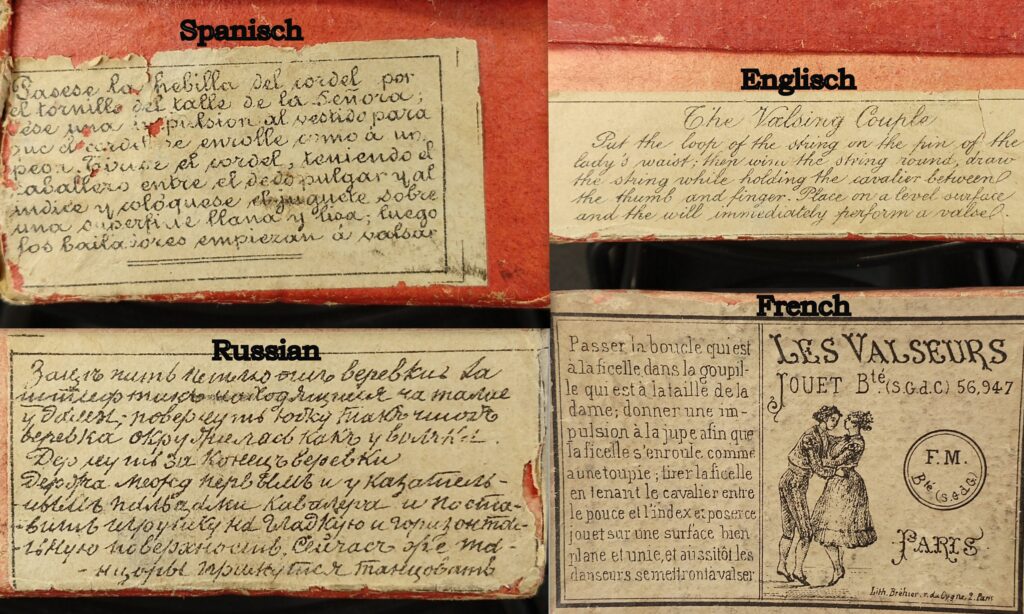 Spanisch
Pasese la hebilla del cordel por
el tornillo del talle de la Señora;
una impulsion al vestido para
que el se enrolle como á un
peon. el cordel, teniendo el
caballero entre el dedo pulgar y al
indice y colóquese el juguete sobre
una superficie llana y lisa; luego
los bailadores empiezan á valsar
Englisch
The Valsing Couple
Put the loop of the string on the pin of the
lady's waist; then wind the string round, draw
the string while holding the cavalier between
the thumb and finger. Place on a level surface
and the will immediately perform a valse.
Russian
петлю отъ веревки за
на талие
у дамы; повернуть юбку такъ чтобъ
веревка окружилась какъ у
за конецъ веревки
Держа между первымъ и указатель-
нымъ пальцами кавалера и поста-
вить игрушку на гладкую и горизонта-
льную поверхность. Сейчасъ же та-
нцоры примутся танцовать
French
Passer la boucle qui est
à la ficelle, dans la goupil-
le qui est à la taille de la
dame; donner une im-
pulsion à la jupe afin que
la ficelle s'enroule comme
a une toupie; tirer la ficelle
en tenant le cavalier entre
le pouce et l'index et poser ce
jouet sur une surface bien
plane et unie, et aussitôt les
danseurs se mettront à valser
LES VALSEURS
JOUET Bté (S.G.d.C) 56,947
F.M.
Bté (s.g.d.G.)
PARIS
Lith. Bréhier, r. du Cygne, 2. Paris